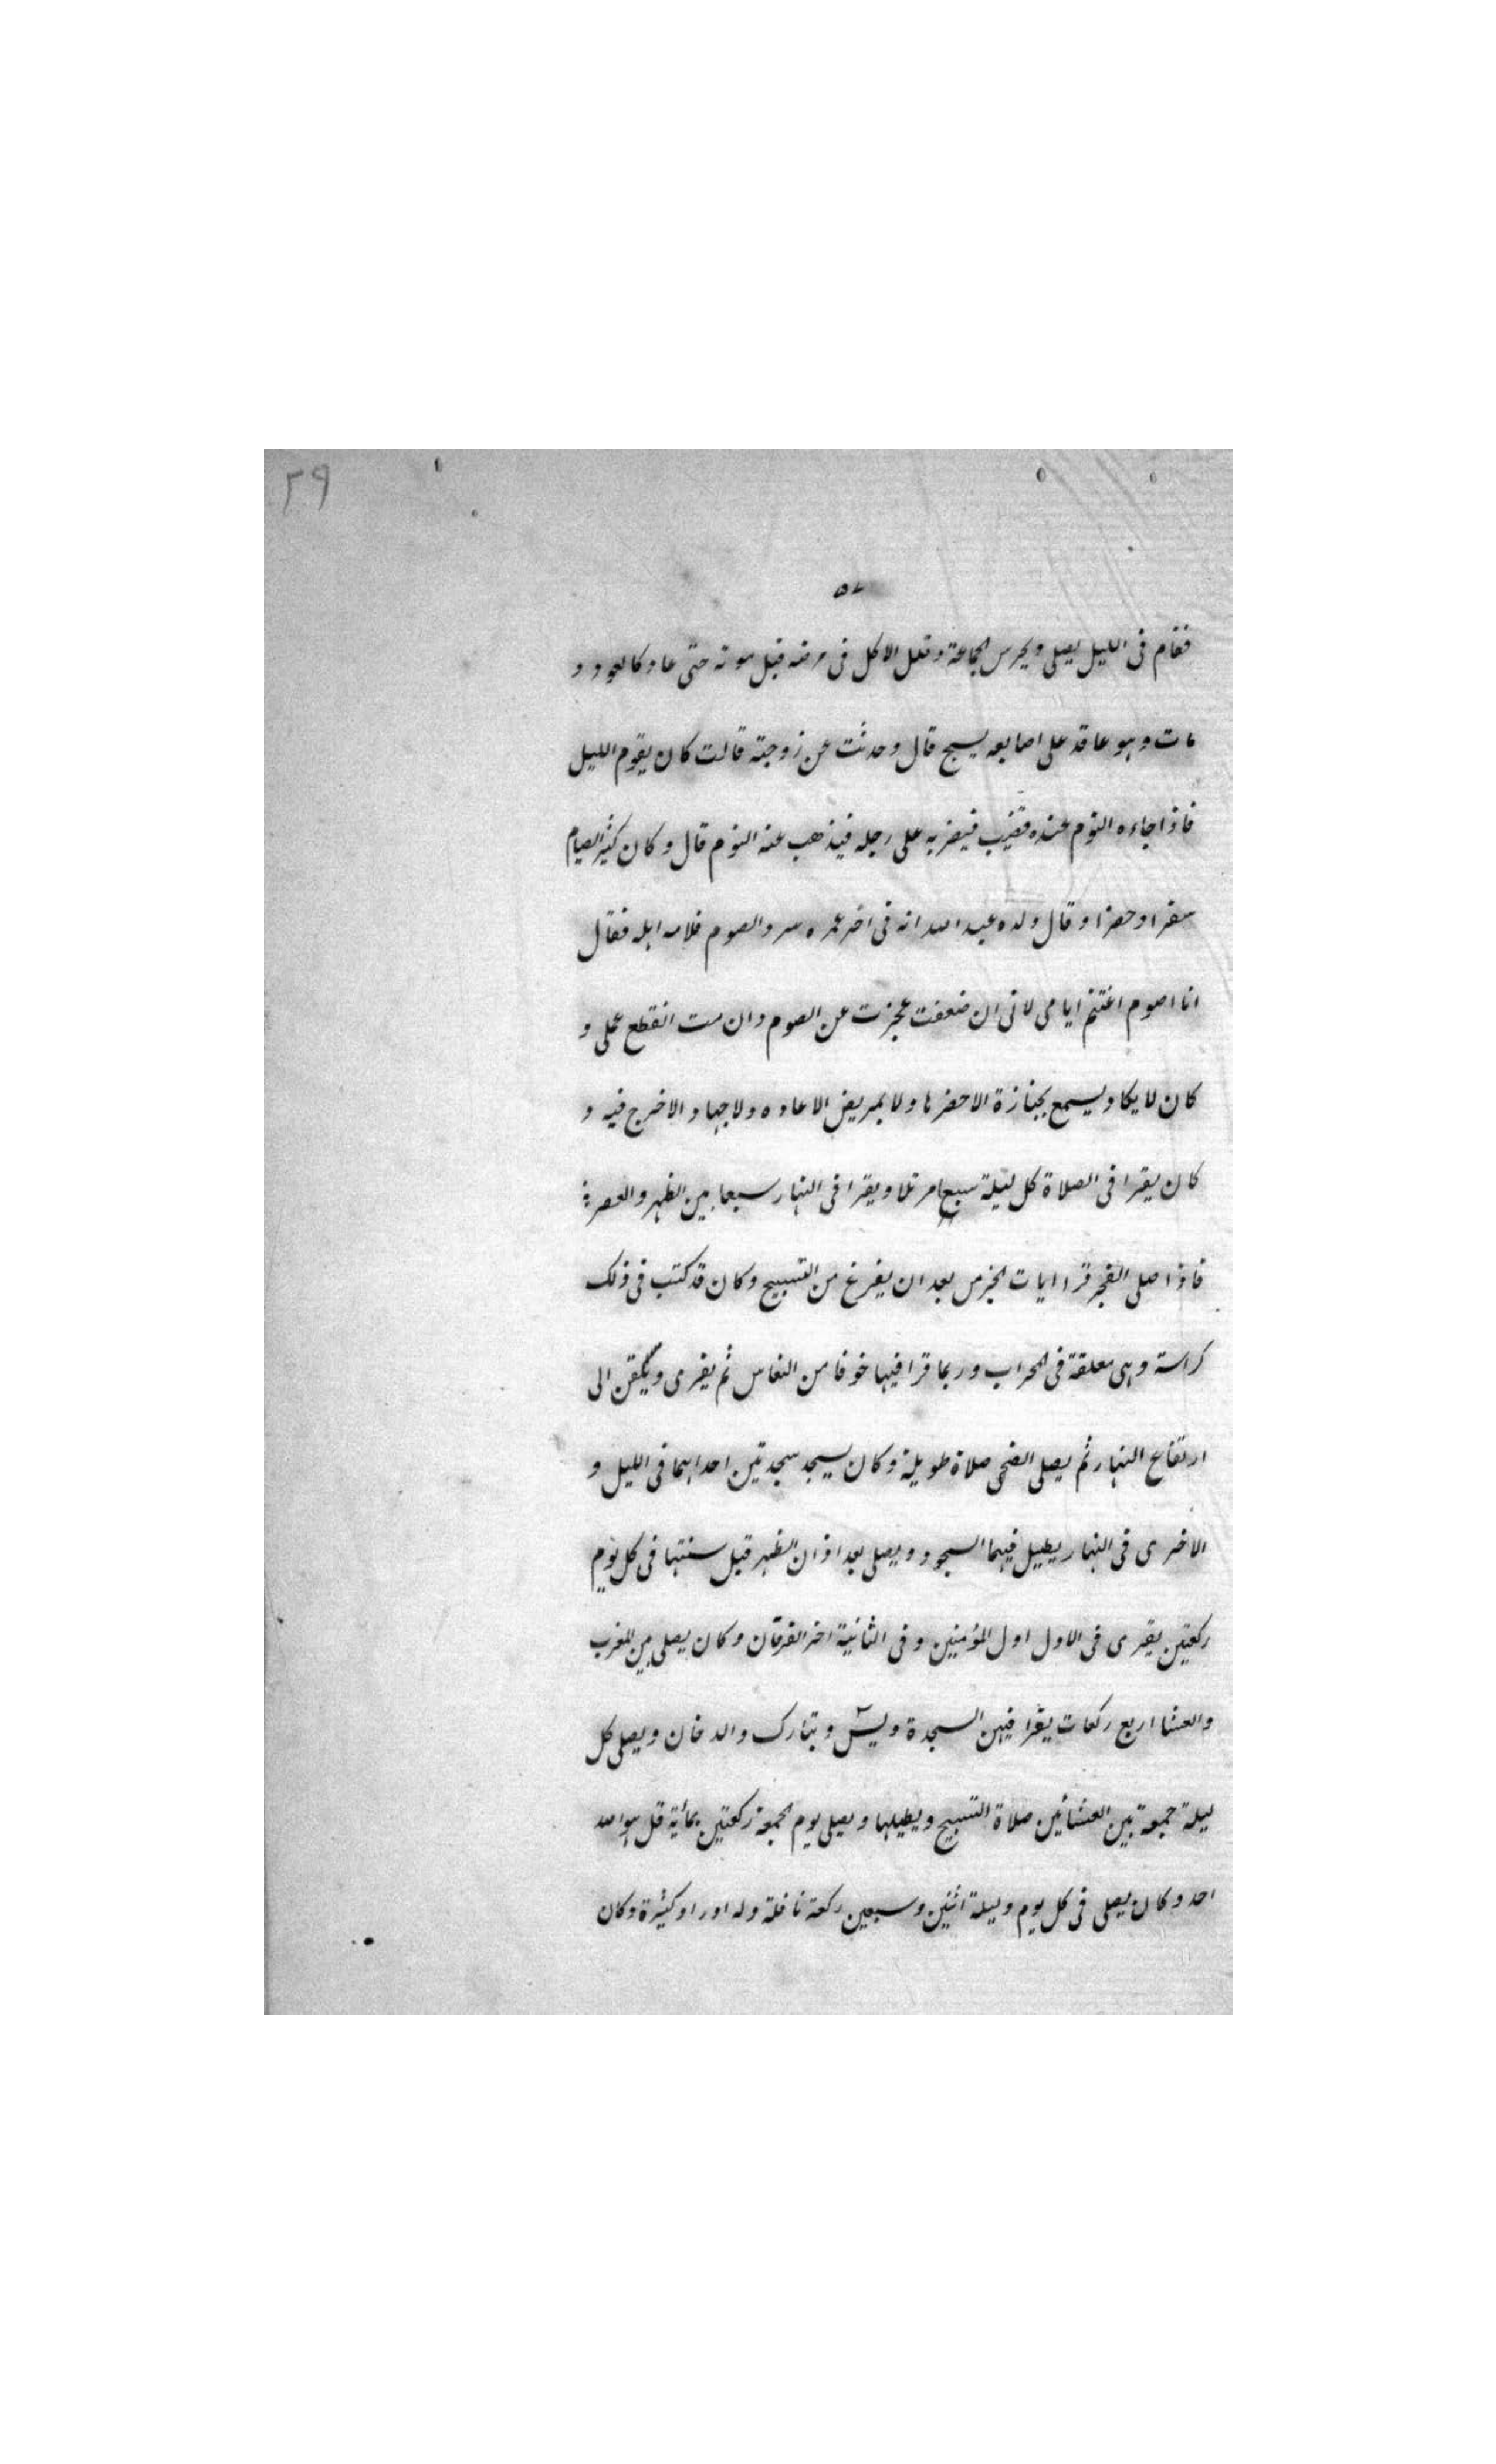 ٢٩
٥٧
فقام فى الليل يصلى ويحرس الجماعة وقلل الاكل فى مرضه قبل موته حتى عاد كالعود و
مات وهو عاقد على اصابعه يسبح قال وحدثت عن زوجته قالت كان يقوم الليل
فاذا جاءه النوم عنده قضيب فيضربه على رجله فيذهب عنه النوم قال وكان كثير الصيام
سفرا وحضرا وقال ولده عبد الله انه فى اخر عمره سرد الصوم فلامه اهله فقال
انا اصوم اغتنم ايامى لانى ان ضعفت عجزت عن الصوم وان مت انقطع عملى و
كان لا يكاد يسمع بجنازة الا حضرها ولا بمريض الا عاده ولا جهاد الا خرج فيه و
كان يقرا فى الصلاة كل ليلة سبعا مرتلا ويقرا فى النهار سبعا بين الظهر والعصر
فاذا صلى الفجر قرا ايات الحرس بعد ان يفرغ من التسبيح وكان قد كتب فى ذلك
كراسة وهى معلقة فى المحراب وربما قرا فيها خوفا من النعاس ثم يقرى ويلقن الى
ارتفاع النهار ثم يصلى الضحى صلاة طويلة وكان يسجد سجدتين احداهما فى الليل و
الاخرى فى النهار يطيل فيهما السجود ويصلى بعد اذان الظهر قبل سنتها فى كل يوم
ركعتين يقرى فى الاول اول المؤمنين وفى الثانية اخر الفرقان وكان يصلى بين المغرب
والعشا اربع ركعات يقرا فيهن السجدة ويس وتبارك والدخان ويصلى كل
ليلة جمعة بين العشائين صلاة التسبيح ويطيلها ويصلى يوم الجمعة ركعتين بمائة قل هو الله
احد وكان يصلى فى كل يوم وليلة اثنين وسبعين ركعة نافلة وله اوراد كثيرة وكان